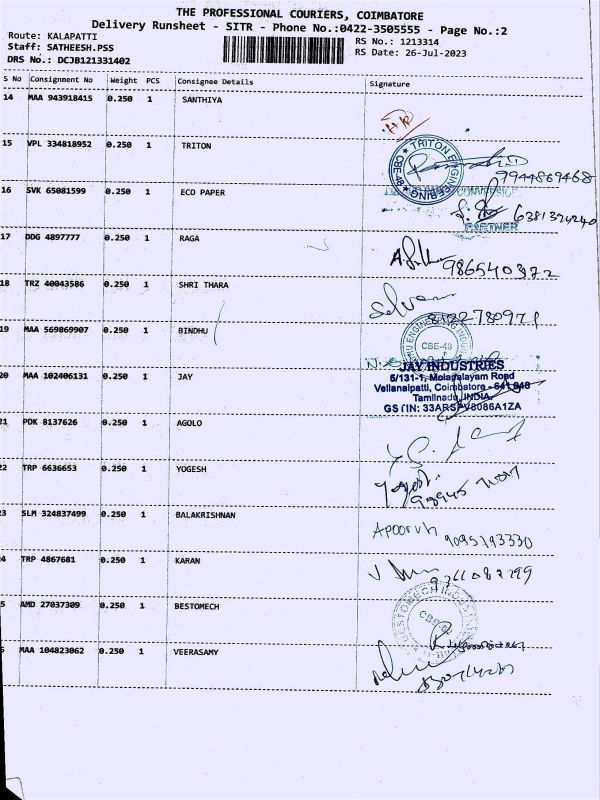 THE PROFESSIONAL COURIERS, COIMBATORE
Delivery Runsheet - SITR - Phone No.:0422-3505555 - Page No.:2
Route: KALAPATTI
RS No.: 1213314
Staff: SATHEESH.PSS
RS Date: 26-Jul-2023
DRS No.: DCJB121331402
S No Consignment No Weight PCS Consignee Details Signature
14 MAA 943918415 0.250 1 SANTHIYA
15 VPL 334818952 0.250 1 TRITON
TRITON ENGINEERING
CBE-48
9944869468
16 SVK 65081599 0.250 1 ECO PAPER
6381324240
PARTNER
17 DDG 4897777 0.250 1 RAGA
18 TRZ 40043586 0.250 1 SHRI THARA
Selvam
19 MAA 569869907 0.250 1 BINDHU
CBE-48
20 MAA 102406131 0.250 1 JAY
JAY INDUSTRIES
Vellanaipatti, Coimbatore - 641 048
Tamilnadu, INDIA.
21 PDK 8137626 0.250 1 AGOLO
22 TRP 6636653 0.250 1 YOGESH
23 SLM 324837499 0.250 1 BALAKRISHNAN
9095193330
24 TRP 4867681 0.250 1 KARAN
5 AMD 27037309 0.250 1 BESTOMECH
MAA 104823062 0.250 1 VEERASAMY